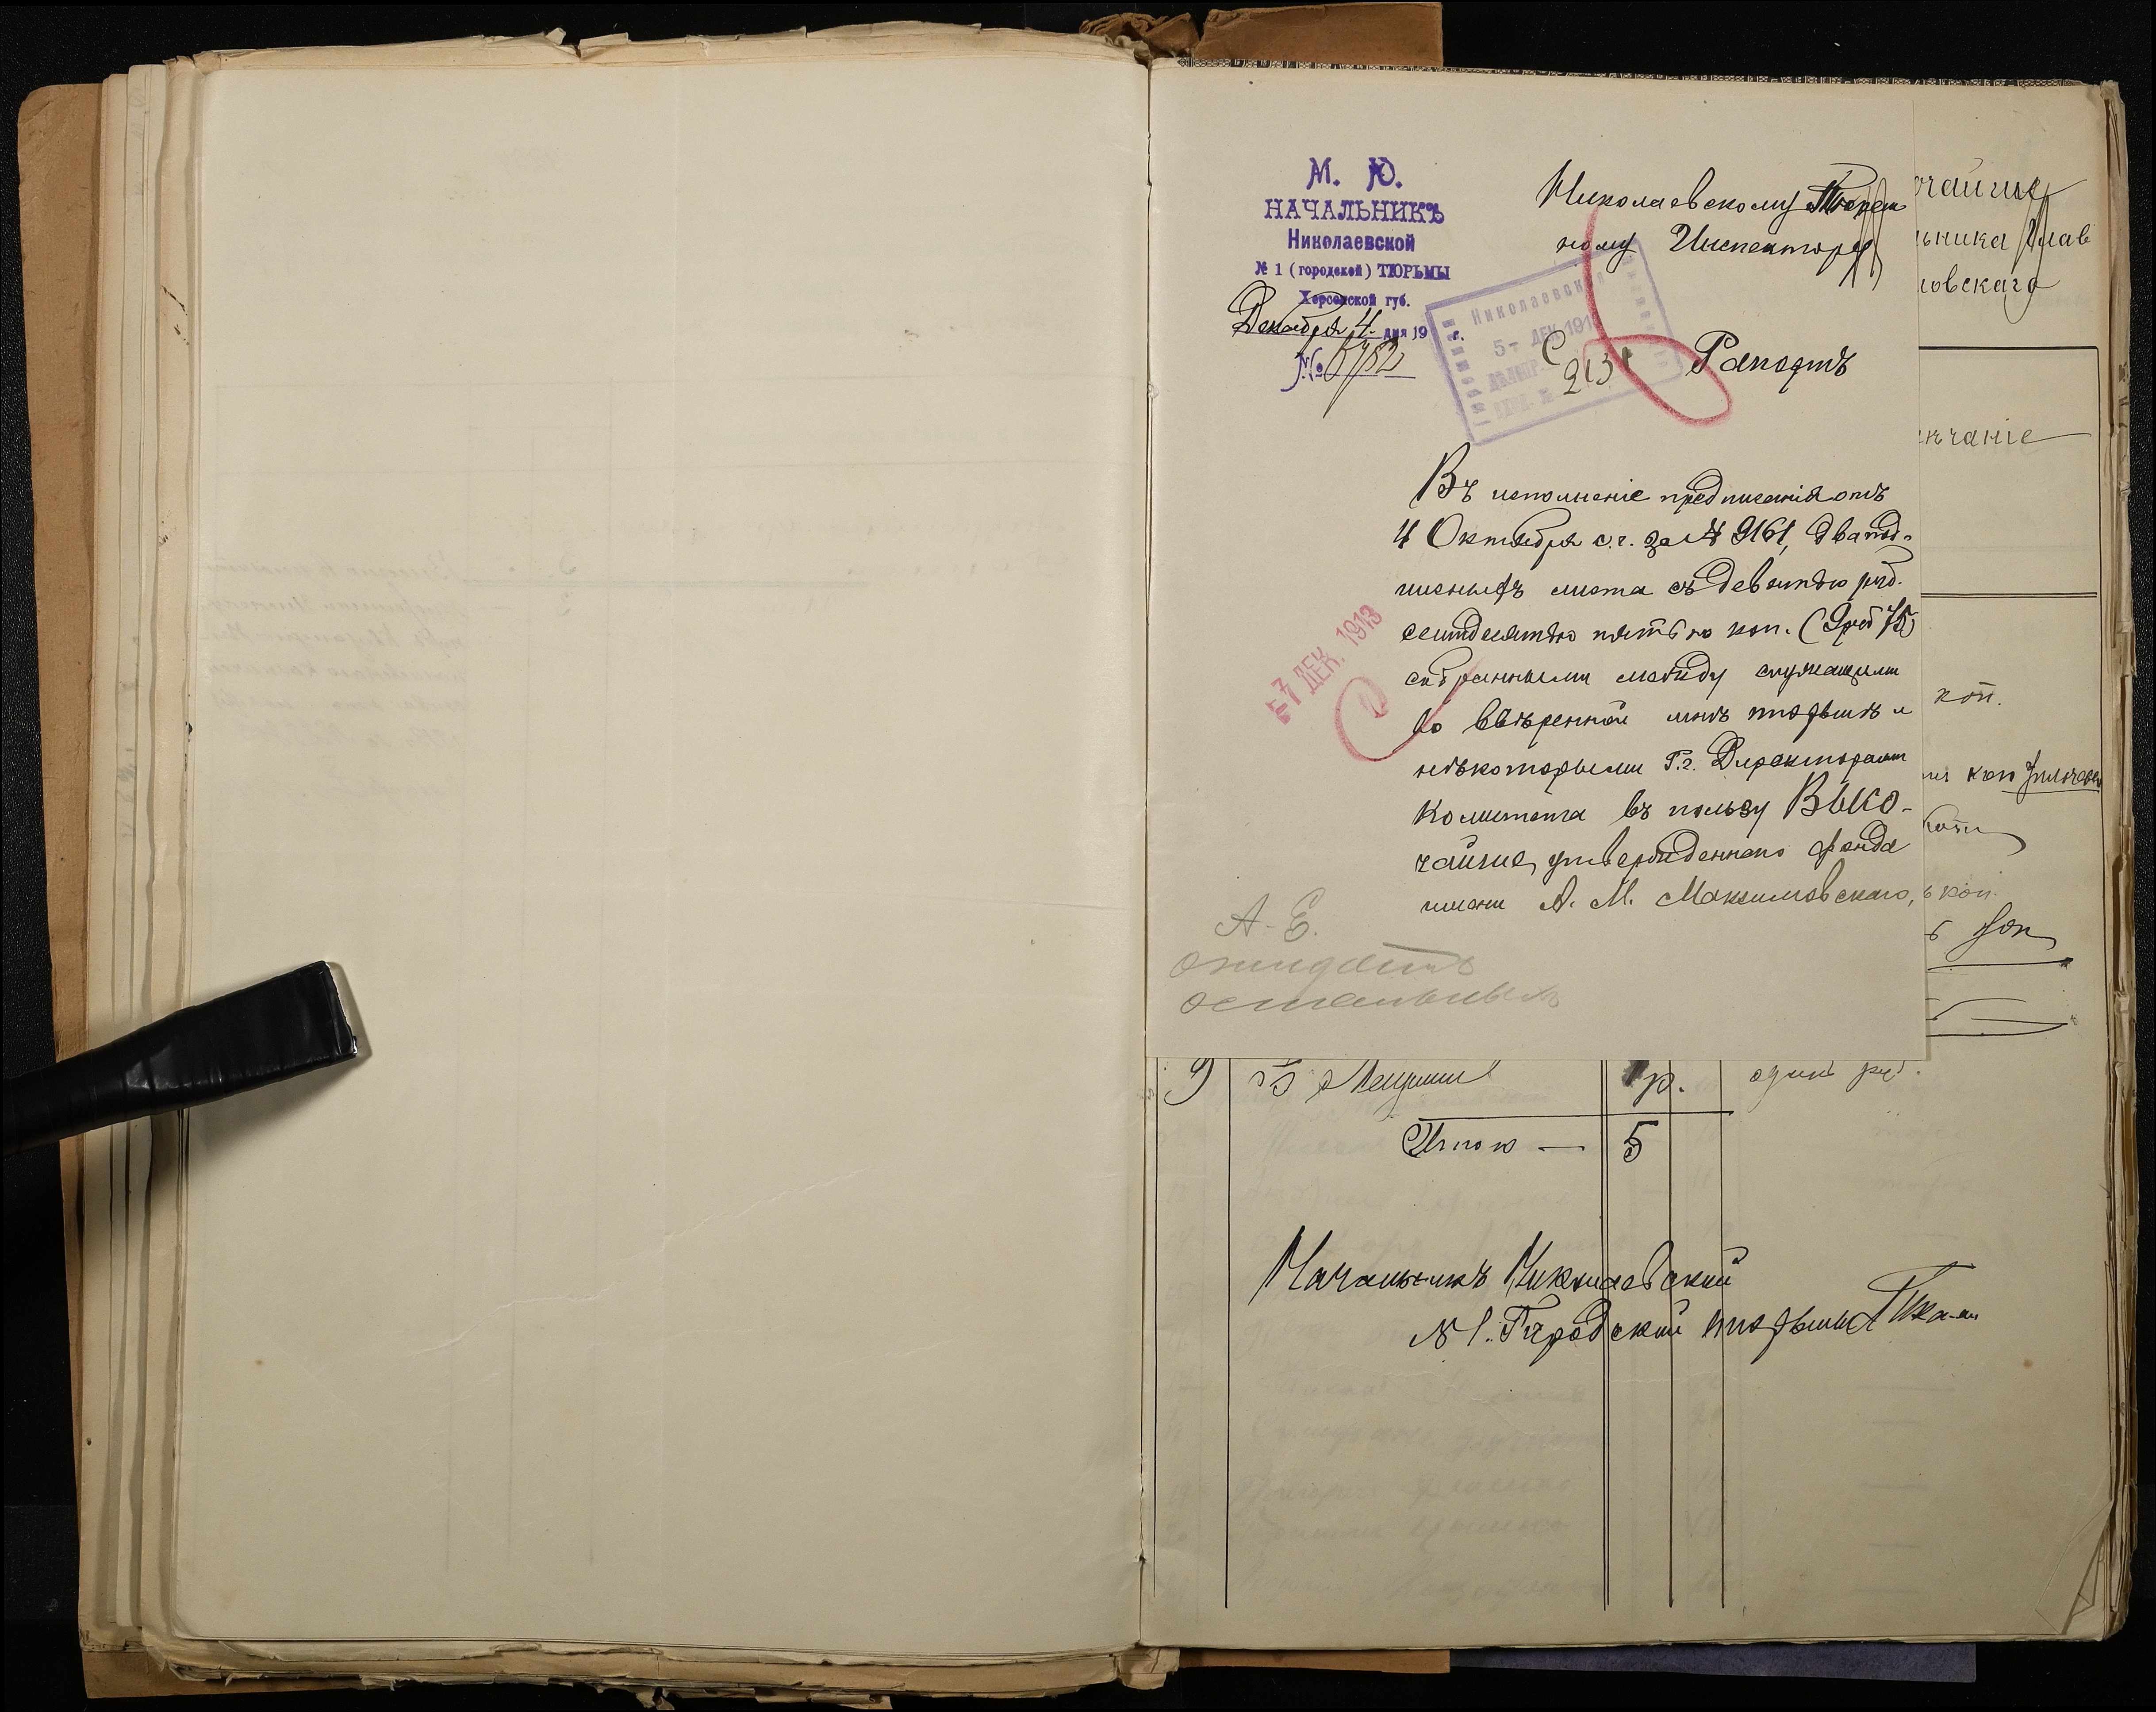 М. Ю.
НАЧАЛЬНИКЪ
Николаевской
№ 1 (городской) ТЮРЬМЫ
Херсонской губ.
Декабря 4 дня 19 г.
№ 5782
Николаевскому Тюрем
ному Инспектору
Николаевск
5- ДЕК 191
2131
Рапортъ
Въ исполненіе предписанія отъ
4 Октября с.г. за № 9161, два под-
писныхъ листа съ девятью руб.
семидесятью пятью коп. (9 руб 75)
собранными между служащими
во ввѣренной мнѣ тюрьмѣ и
нѣкоторыми Г.г. Директорами
Комитета въ пользу Высо-
чайше утвержденнаго фонда
имени А. М. Максимовскаго,
-7 ДЕК. 1913
А-Е.
ожидать
остальныхъ
чайше
ьника Глав
овскаго
чаніе
коп.
коп
ь коп.
9 1 р. одинъ руб.
Итого — 5
Начальникъ Николаевской
№ 1. Городской тюрьмы